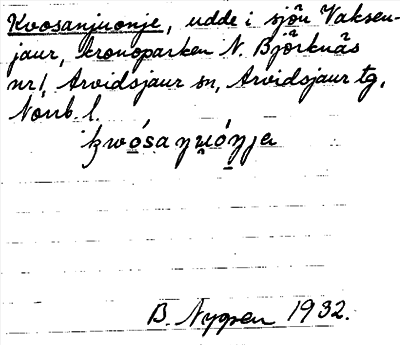 Kvosanjuonje, udde i sjön Vaksen-
jaur, kronoparken N. Björknäs
nr 1, Arvidsjaur sn, Arvidsjaur tg,
Norrb. l.
kwósaŋuóŋja
B. Nygren 1932.